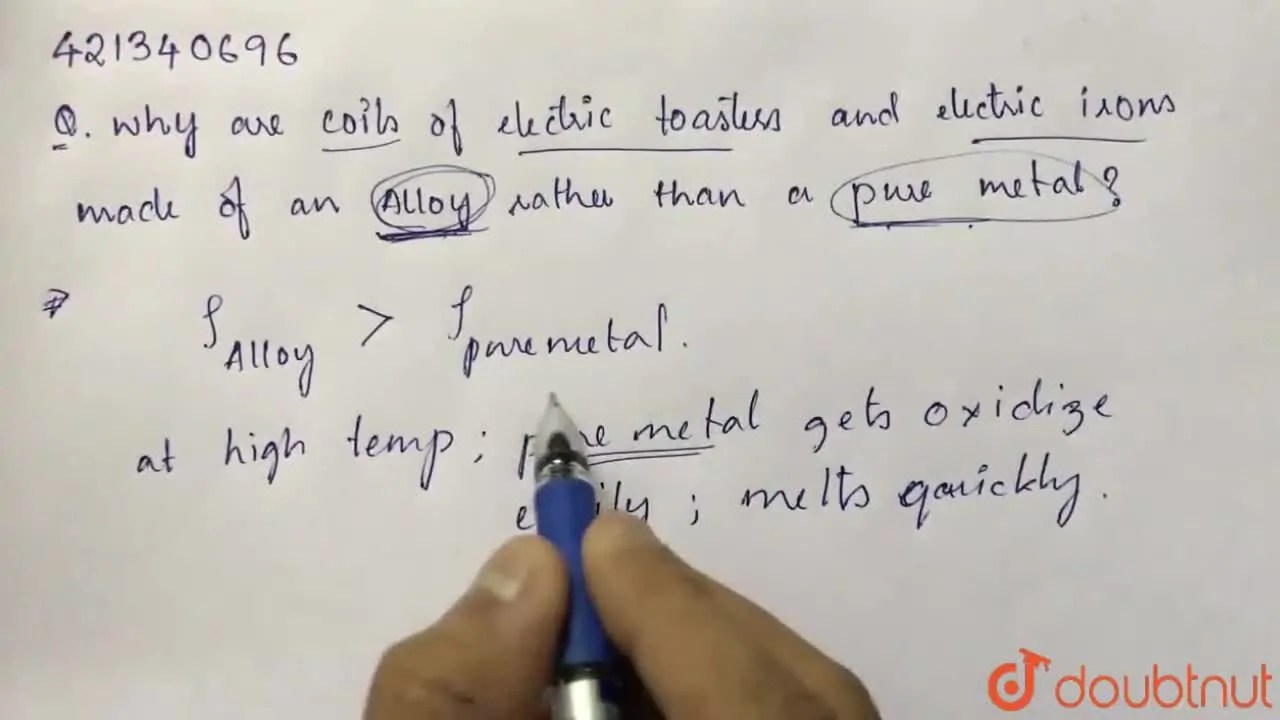 421340696
Q. why are coils of electric toasters and electric irons
made of an Alloy rather than a pure metal?
⇒ ρ Alloy > ρ pure metal.
at high temp; pure metal gets oxidize
easily; melts quickly.
doubtnut